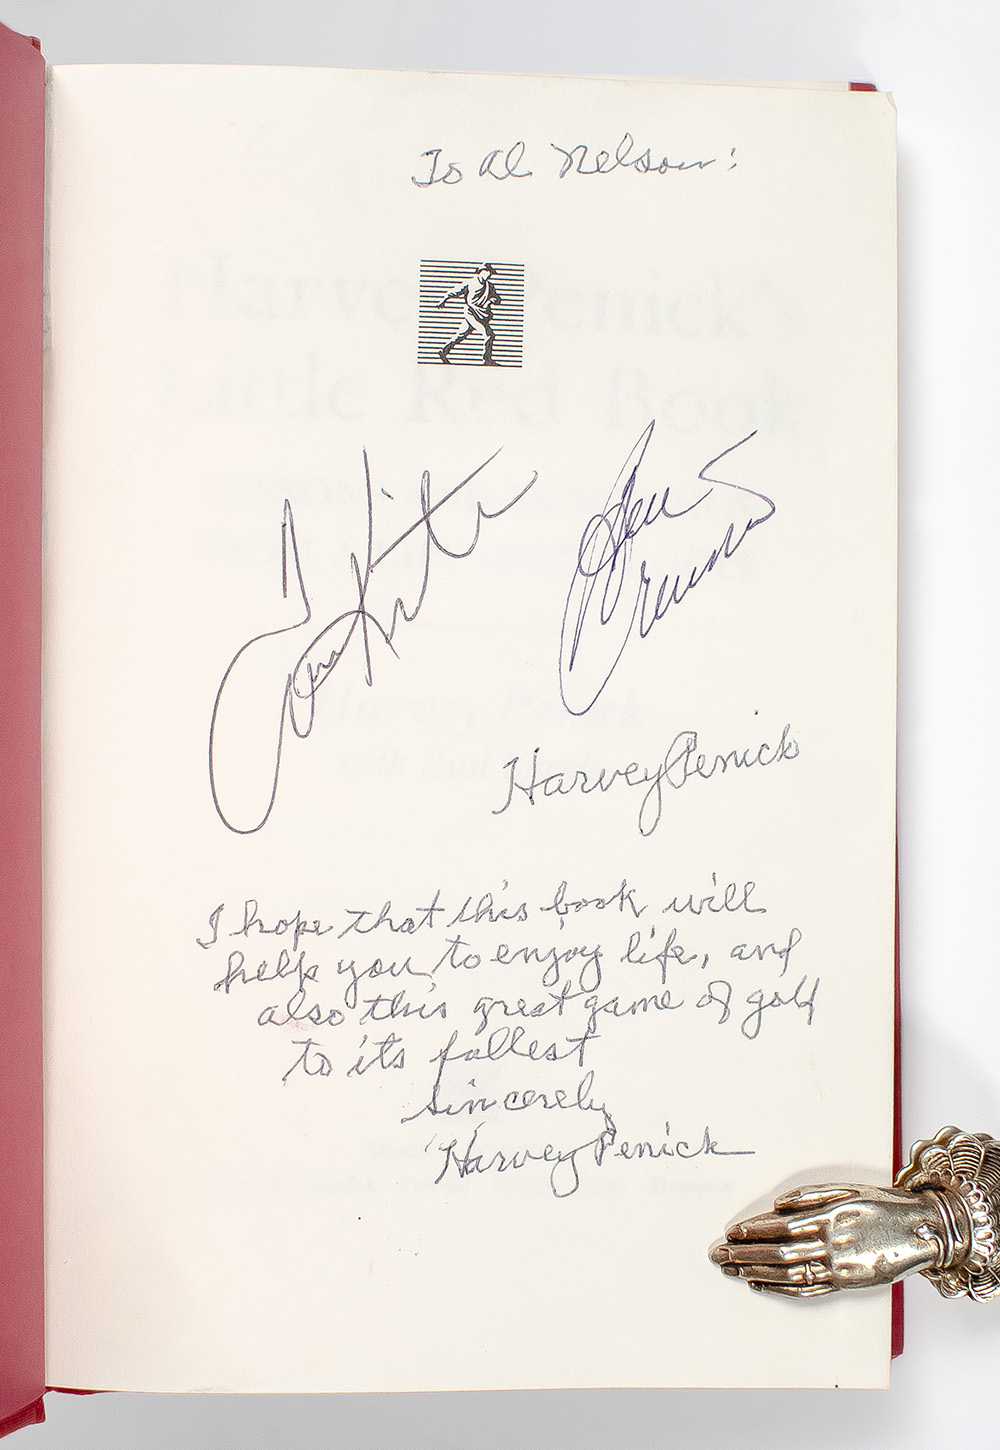 To Al Nelson:
Harvey Penick's
Little Red Book
Tom Kite
Ben Crenshaw
Harvey Penick
Harvey Penick
I hope that this book will
help you to enjoy life, and
also this great game of golf
to its fullest
sincerely
Harvey Penick